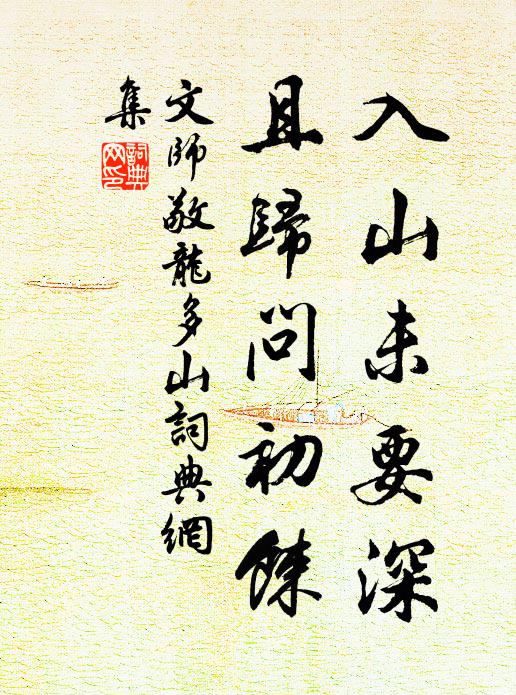 入山未要深
且歸問初餗
文師敬龍多山詞典網
集
詞典網印